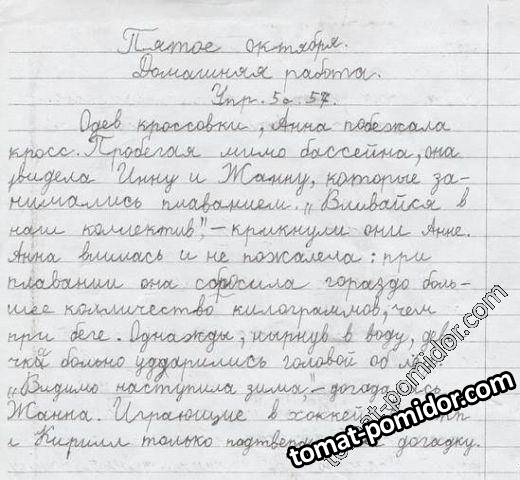 Пятое октября.
Домашняя работа.
Упр. 5а. 57.
Одев кроссовки, Анна побежала
кросс. Пробегая мимо бассейна, она
увидела Инну и Жанну, которые за-
нимались плаванием. „Вливайся в
наш коллектив", – крикнули они Анне.
Анна влилась и не пожалела: при
плавании она сбросила гораздо боль-
шее количество килограммов, чем
при беге. Однажды, нырнув в воду, дев
чки больно ударились головой об
„Видимо наступила зима," –
Жанна. Играющие в хоккей
и Кирилл только догадку.
tomat-pomidor.com
tomat-pomidor.com